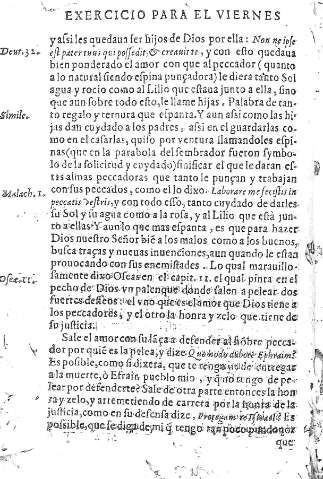 EXERCICIO PARA EL VIERNES
y assi les quedaua ser hijos de Dios por ella: Non ne ipse
Deut. 32. est pater tuus qui possedit, & creauit te, y con esto quedaua
bien ponderado el amor con que al peccador (quanto
a lo natural siendo espina punçadora) le diera tanto Sol
agua y rocio como al Lilio que estaua junto a ella, sino
que aun sobre todo esto, le llame hijas. Palabra de tan-
to regalo y ternura que espanta. Y aun assi como las hi
Simile. jas dan cuydado a los padres, assi en el guardarlas co-
mo en el casarlas, quiso por ventura llamandoles espi-
nas (que en la parabola del sembrador fueron symbo-
lo de la solicitud y cuydado) significar el que le daran es-
tas almas peccadoras que tanto le punçan y trabajan
Malach. 1. con sus peccados, como el lo dixo: Laborare me fecistis in
peccatis vestris, y con todo esso, tanto cuydado de darles
su Sol y su agua como a la rosa, y al Lilio que está jun-
to a ellas. Y aun lo que mas espanta, es que para hazer
Dios nuestro Señor biē a los malos como a los buenos,
busca traças y nueuas inuenciones, aun quando le estan
prouocando con sus enemistades. Lo qual marauillo-
Osee. 11. samente dixo Oseas en el capit. 11. el qual pinta en el
pecho de Dios vn palenque donde salen a pelear dos
fuertes desseos: el vno que es el amor que Dios tiene a
los peccadores, y el otro la honra y zelo que tiene de
su justicia.
Sale el amor con su lāça a defender al hōbre pecca-
dor por quiē es la pelea, y dize Quomodo dabo te Ephraim?
Es posible, como si dixera, que te tengo de entregar
a la muerte, ò Efraín pueblo mio, y q̄ no tengo de pe-
lear por defenderte? Sale de otra parte entonces la hon
ra y zelo, y arremetiendo de carrera por la honra de la
justicia, como en su defensa dize, Protegam te Israel? Es
possible, que se diga de mi q̄ tengo tan poco pundonor
que